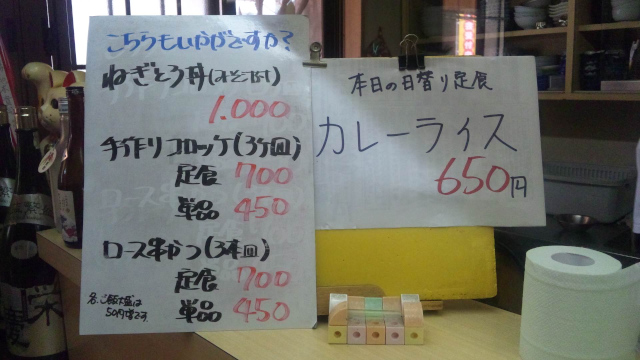 こちらもいかがですか?
ねぎとろ丼(みそ汁付)
1.000
手作りコロッケ(3ケ回)
定食 700
単品 450
ロース串かつ(3本回)
定食 700
単品 450
ご飯大盛は
50円増です。
本日の日替り定食
カレーライス
650円